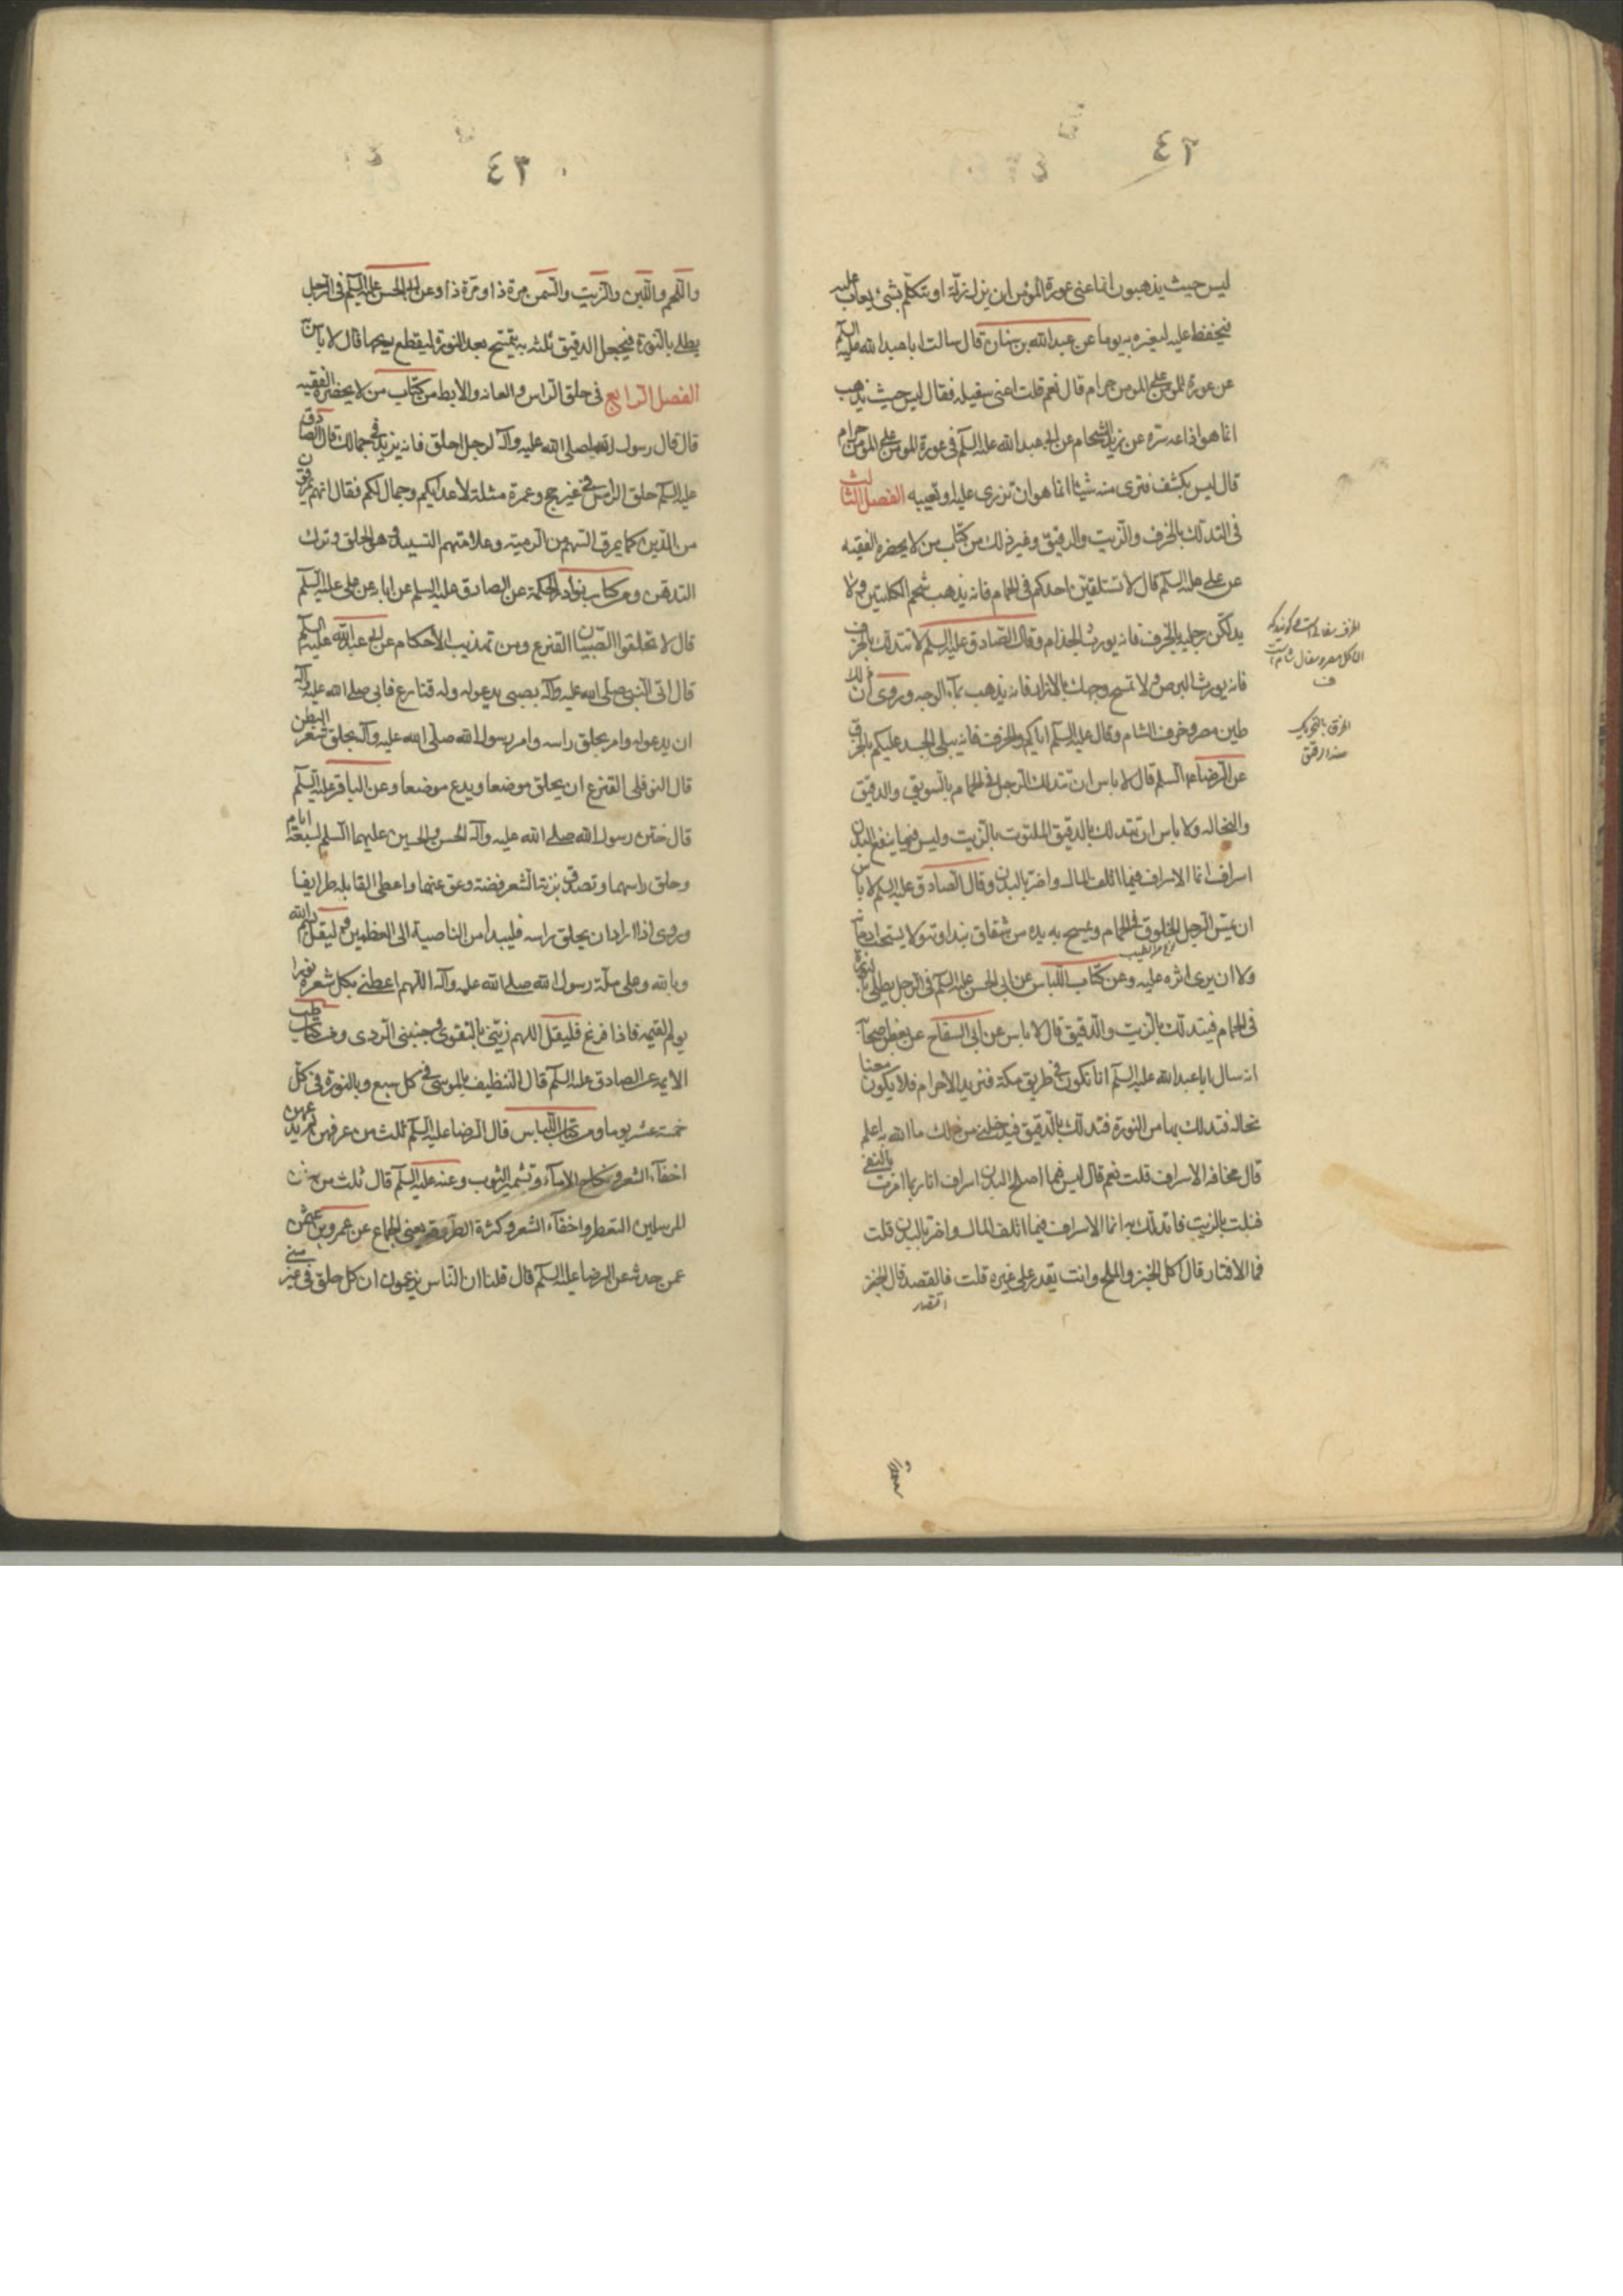 ٤٢
ليس حيث يذهبون انما عنى عورة المؤمن ان يزل زلة او يتكلم بشئ يعاب عليه
فيحفظ عليه ليعيره به يوما عن عبد الله بن سنان قال سالت ابا عبد الله عليه السلم
عن عورة المؤمن على المومن حرام قال نعم قلت اعنى سفليه فقال ليس حيث يذهب
انما هو اذاعة سره عن زيد الشحام عن ابى عبد الله عليه السلم فى عورة المومن على المومن حرام
قال ليس يكشف فترى منه شيئا انما هو ان تزرى عليه او تعيبه الفصل الثالث
فى التدلك بالخزف والزيت والدقيق وغير ذلك من كتاب من لا يحضره الفقيه
عن على عليه السلم قال لا تستلقين احدكم فى الحمام فانه يذهب شحم الكليتين ولا
يدلكن رجليه بالخزف فانه يورث الجذام وقال الصادق عليه السلم لا تتدلك بالخزف
فانه يورث البرص ولا تمسح وجهك بالازار فانه يذهب بماء الوجه وروى ان ذلك
طين مصر وخزف الشام وقال عليه السلم اياكم والخزف فانه يبلى الجسد عليكم بالخرق
عن الرضا عليه السلم قال لا باس ان تتدلك الرجل فى الحمام بالسويق والدقيق
والنخاله ولا باس ان تتدلك بالدقيق الملتوت بالزيت وليس فيما ينفع البدن
اسراف انما الاسراف فيما اتلف المال واضر بالبدن وقال الصادق عليه السلم لا باس
ان يمس الرجل الخلوق فى الحمام ويمسح به يده من شقاق يداويه ولا يستحب ادمانه
نوع من الطيب
ولا ان يرى اثره عليه وعن كتاب اللباس عن ابى الحسن عليه السلم فى الرجل يطلى بالنورة
فى الحمام فيتدلك بالزيت والدقيق قال لا باس عن ابى السفاح عن بعض اصحابه
انه سال ابا عبد الله عليه السلم انا نكون فى طريق مكة فنريد الاحرام فلا يكون معنا
نخاله فتدلك بها من النورة فتدلك بالدقيق فيدخلنى من ذلك ما الله به اعلم
قال مخافه الاسراف قلت نعم قال ليس فيما اصلح البدن اسراف انا ربما امرت بالنقى
فيلت بالزيت فاتدلك به انما الاسراف فيما اتلف المال واضر بالبدن قلت
فما الاقتار قال اكل الخبز والملح وانت يقدر على غيره قلت فالقصد قال الخبز
٤٣
واللحم واللبن والزيت والسمن مرة ذا ومرة ذا وعن ابى الحسن عليه السلم فى الرجل
يطلى بالنورة فيجعل الدقيق ثلثه به يتمسح بعد النورة ليقطع ريحها قال لا باس
الفصل الرابع فى حلق الراس والعانه والابط من كتاب من لا يحضره الفقيه
قال قال رسول الله صلى الله عليه وآله لرجل احلق فانه يزيد فى جمالك قال الصادق
عليه السلم حلق الراس فى غير حج وعمرة مثلة لاعدائكم وجمال لكم فقال انهم يمرقون
من الدين كما يمرق السهم من الرمية وعلامتهم التسبيد وهو الحلق وترك
التدهن ومن كتاب نوادر الحكمة عن الصادق عليه السلم عن ابائه عن على عليه السلم
قال لا تحلقوا الصبيان القزع ومن تهذيب الاحكام عن ابى عبد الله عليه السلم
قال اتى النبى صلى الله عليه وآله بصبى يدعو له وله قنازع فابى صلى الله عليه وآله
ان يدعو له وامر بحلق راسه وامر رسول الله صلى الله عليه وآله بحلق شعر البطن
قال النوفلى القزع ان يحلق موضعا ويدع موضعا وعن الباقر عليه السلم
قال ختن رسول الله صلى الله عليه وآله الحسن والحسين عليهما السلم لسبعة ايام
وحلق راسهما وتصدق بزنة الشعر فضة وعق عنهما واعطى القابلة طرايفا
وروى اذا اراد ان يحلق راسه فليبدا من الناصية الى العظمين وليقل بسم الله
وبالله وعلى ملة رسول الله صلى الله عليه وآله اللهم اعطنى بكل شعرة نورا
يوم القيمة فاذا فرغ فليقل اللهم زينى بالتقوى وجنبنى الردى ومن كتاب طب
الايمة عن الصادق عليه السلم قال التنظيف بالموسى فى كل سبع وبالنورة فى كل
خمسة عشر يوما ومن كتاب اللباس قال الرضا عليه السلم ثلث من عرفهن لم يدعهن
اخفاء الشعر ونكاح الاماء وتشمير الثوب وعنه عليه السلم قال ثلث من سنن
المرسلين التعطر واخفاء الشعر وكثرة الطروقة يعنى الجماع عن عمرو بن عثمن
عمن حدثه عن الرضا عليه السلم قال قلنا ان الناس يزعمون ان كل حلق فى غير منى